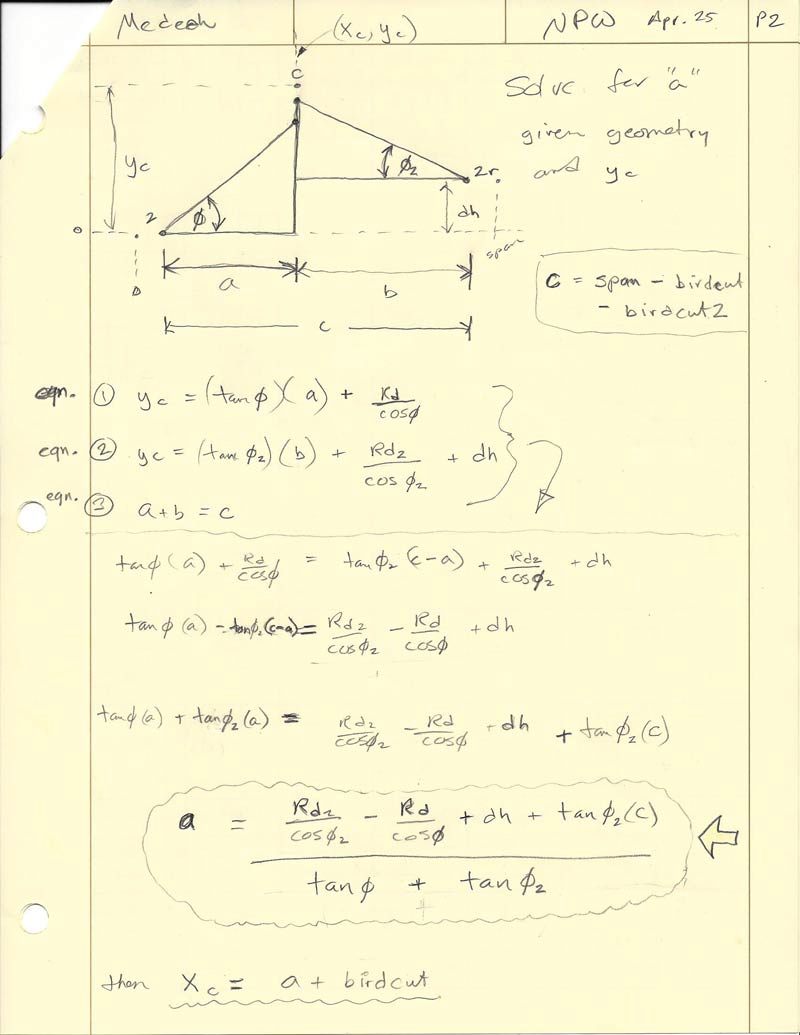 Medeek NPW Apr. 25 P2
(xc, yc)
c
Solve for "a"
given geometry
and yc
yc
ϕ
ϕ2
2
2r
dh
0
0
span
a
b
c
C = span - birdcut
- birdcut2
eqn. ① yc = (tan ϕ)(a) + Rd/cosϕ
eqn. ② yc = (tan ϕ2)(b) + Rd2/cos ϕ2 + dh
eqn. ③ a+b = c
tanϕ(a) + Rd/cosϕ = tanϕ2(c-a) + Rd2/cosϕ2 + dh
tanϕ(a) - tanϕ2(c-a) = Rd2/cosϕ2 - Rd/cosϕ + dh
tanϕ(a) + tanϕ2(a) = Rd2/cosϕ2 - Rd/cosϕ + dh + tanϕ2(c)
a = Rd2/cosϕ2 - Rd/cosϕ + dh + tanϕ2(c)
tanϕ + tanϕ2
then Xc = a + birdcut